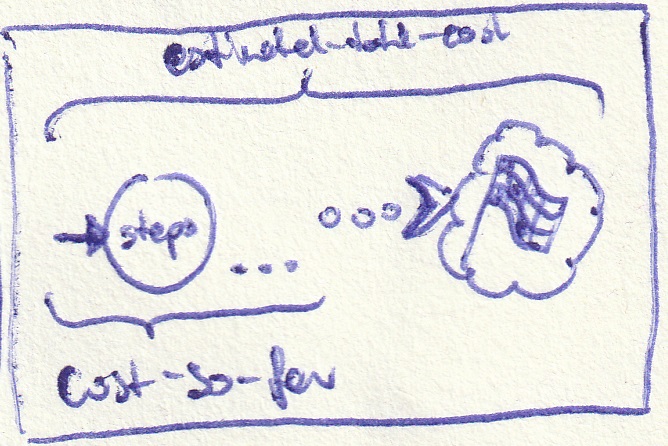 estimated-total-cost
steps
cost-so-far